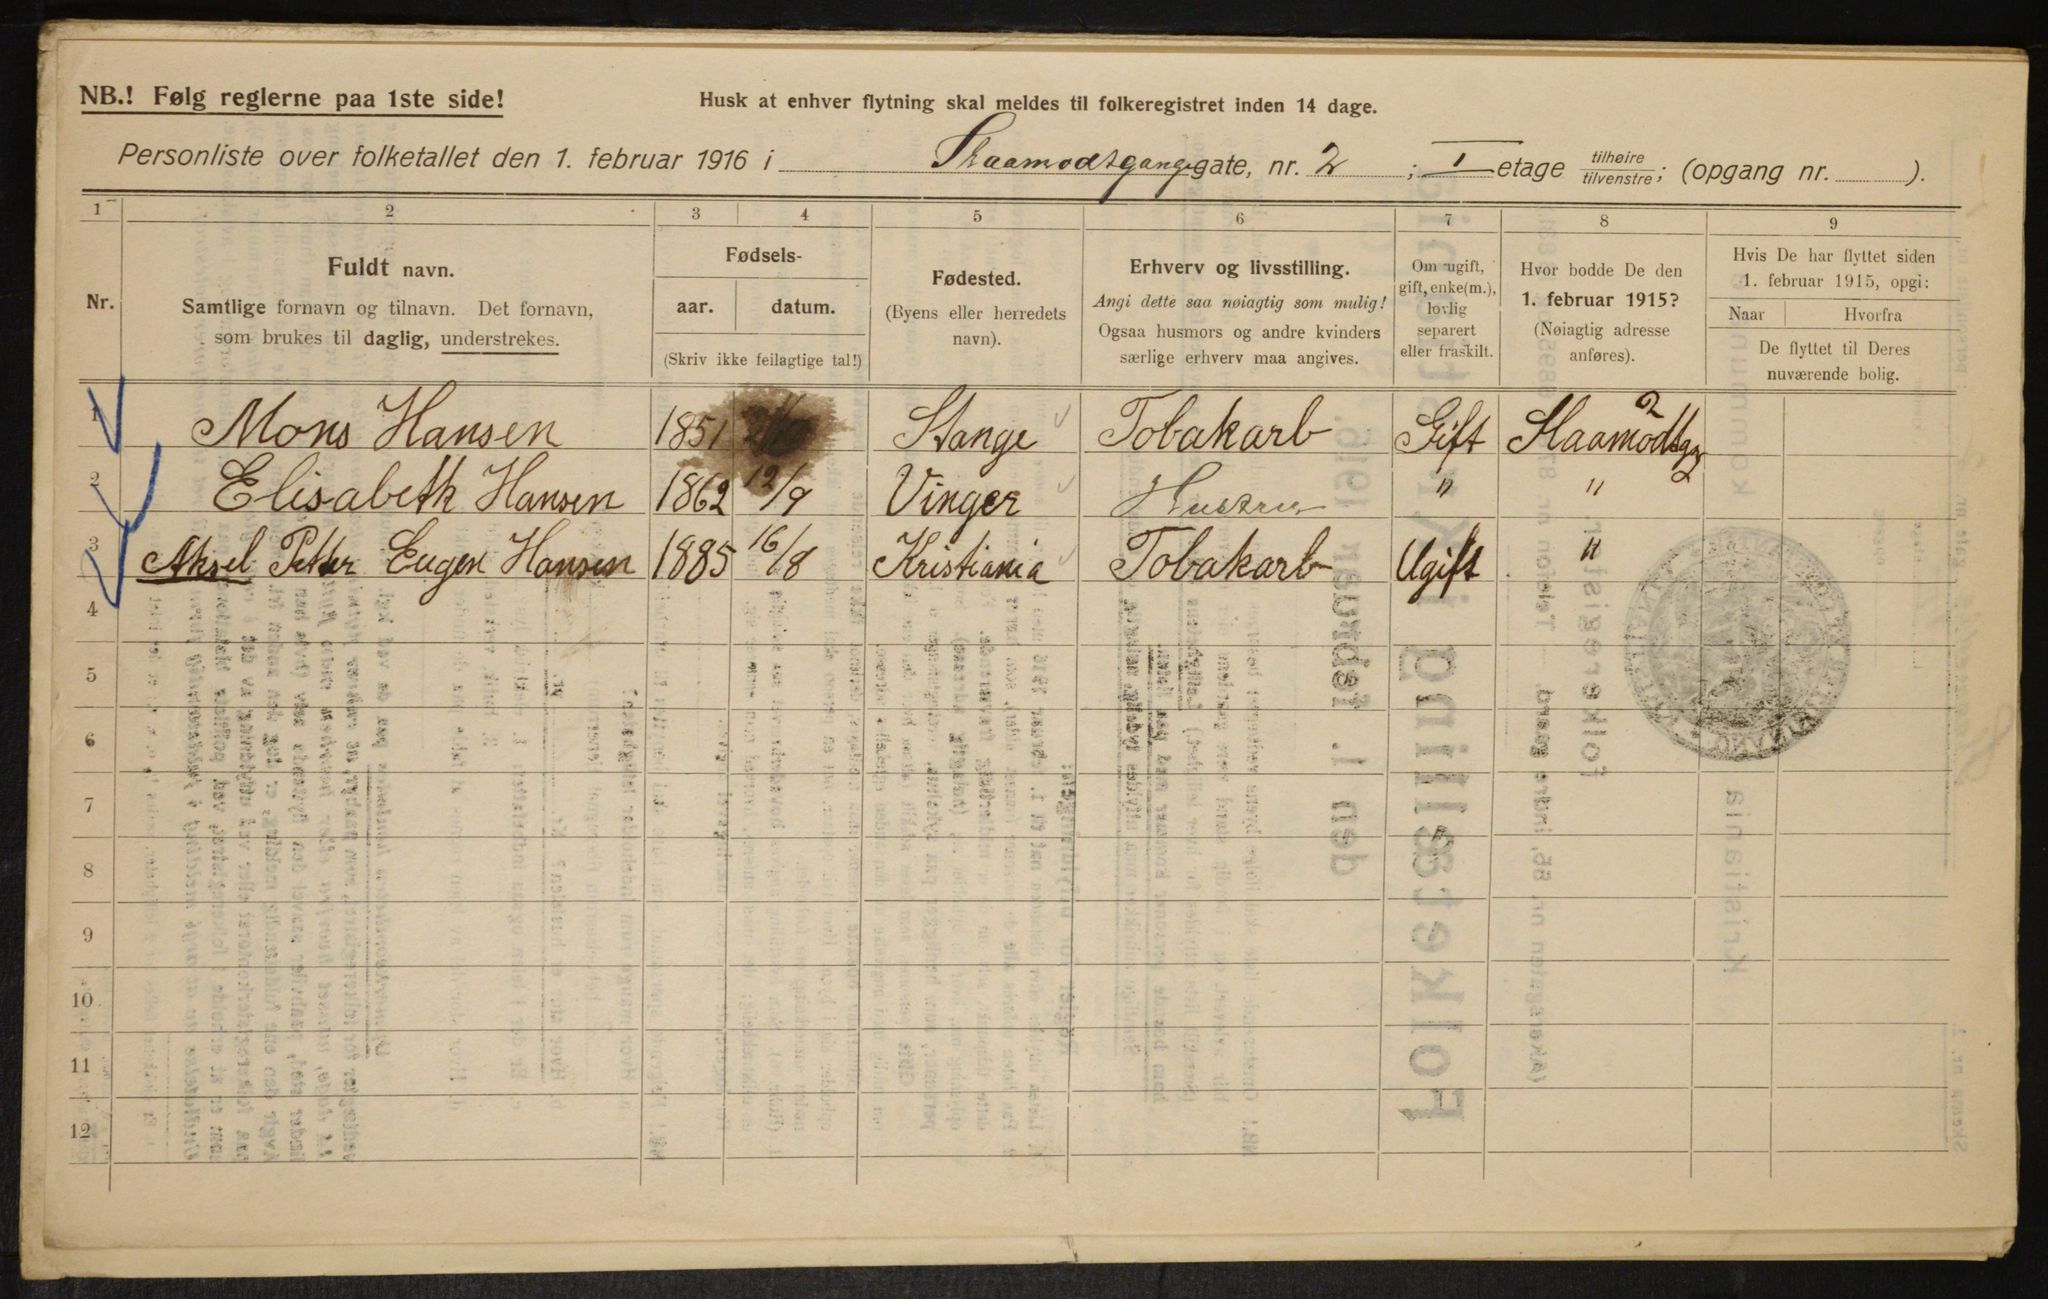 NB.! Følg reglerne paa 1ste side!
Husk at enhver flytning skal meldes til folkeregistret inden 14 dage.
Personliste over folketallet den 1. februar 1916 i Slaamodtgangsgate, nr. 2; I etage tilhøire tilvenstre; (opgang nr. ).
1 2 3 4 5 6 7 8 9
Nr.
Fuldt navn.
Samtlige fornavn og tilnavn. Det fornavn,
som brukes til daglig, understrekes.
Fødsels-
aar. datum.
(Skriv ikke feilagtige tal!)
Fødested.
(Byens eller herredets
navn).
Erhverv og livsstilling.
Angi dette saa nøiagtig som mulig!
Ogsaa husmors og andre kvinders
særlige erhverv maa angives.
Om ugift,
gift, enke(m.),
lovlig
separert
eller fraskilt.
Hvor bodde De den
1. februar 1915?
(Nøiagtig adresse
anføres).
Hvis De har flyttet siden
1. februar 1915, opgi:
Naar Hvorfra
De flyttet til Deres
nuværende bolig.
1 Mons Hansen 1851 Stange Tobakarb Gift Slaamodtg 2
2 Elisabeth Hansen 1862 12/9 Vinger Hustru " "
3 Aksel Petter Eugen Hansen 1885 16/8 Kristiania Tobakarb Ugift "
4
5
6
7
8
9
10
11
12